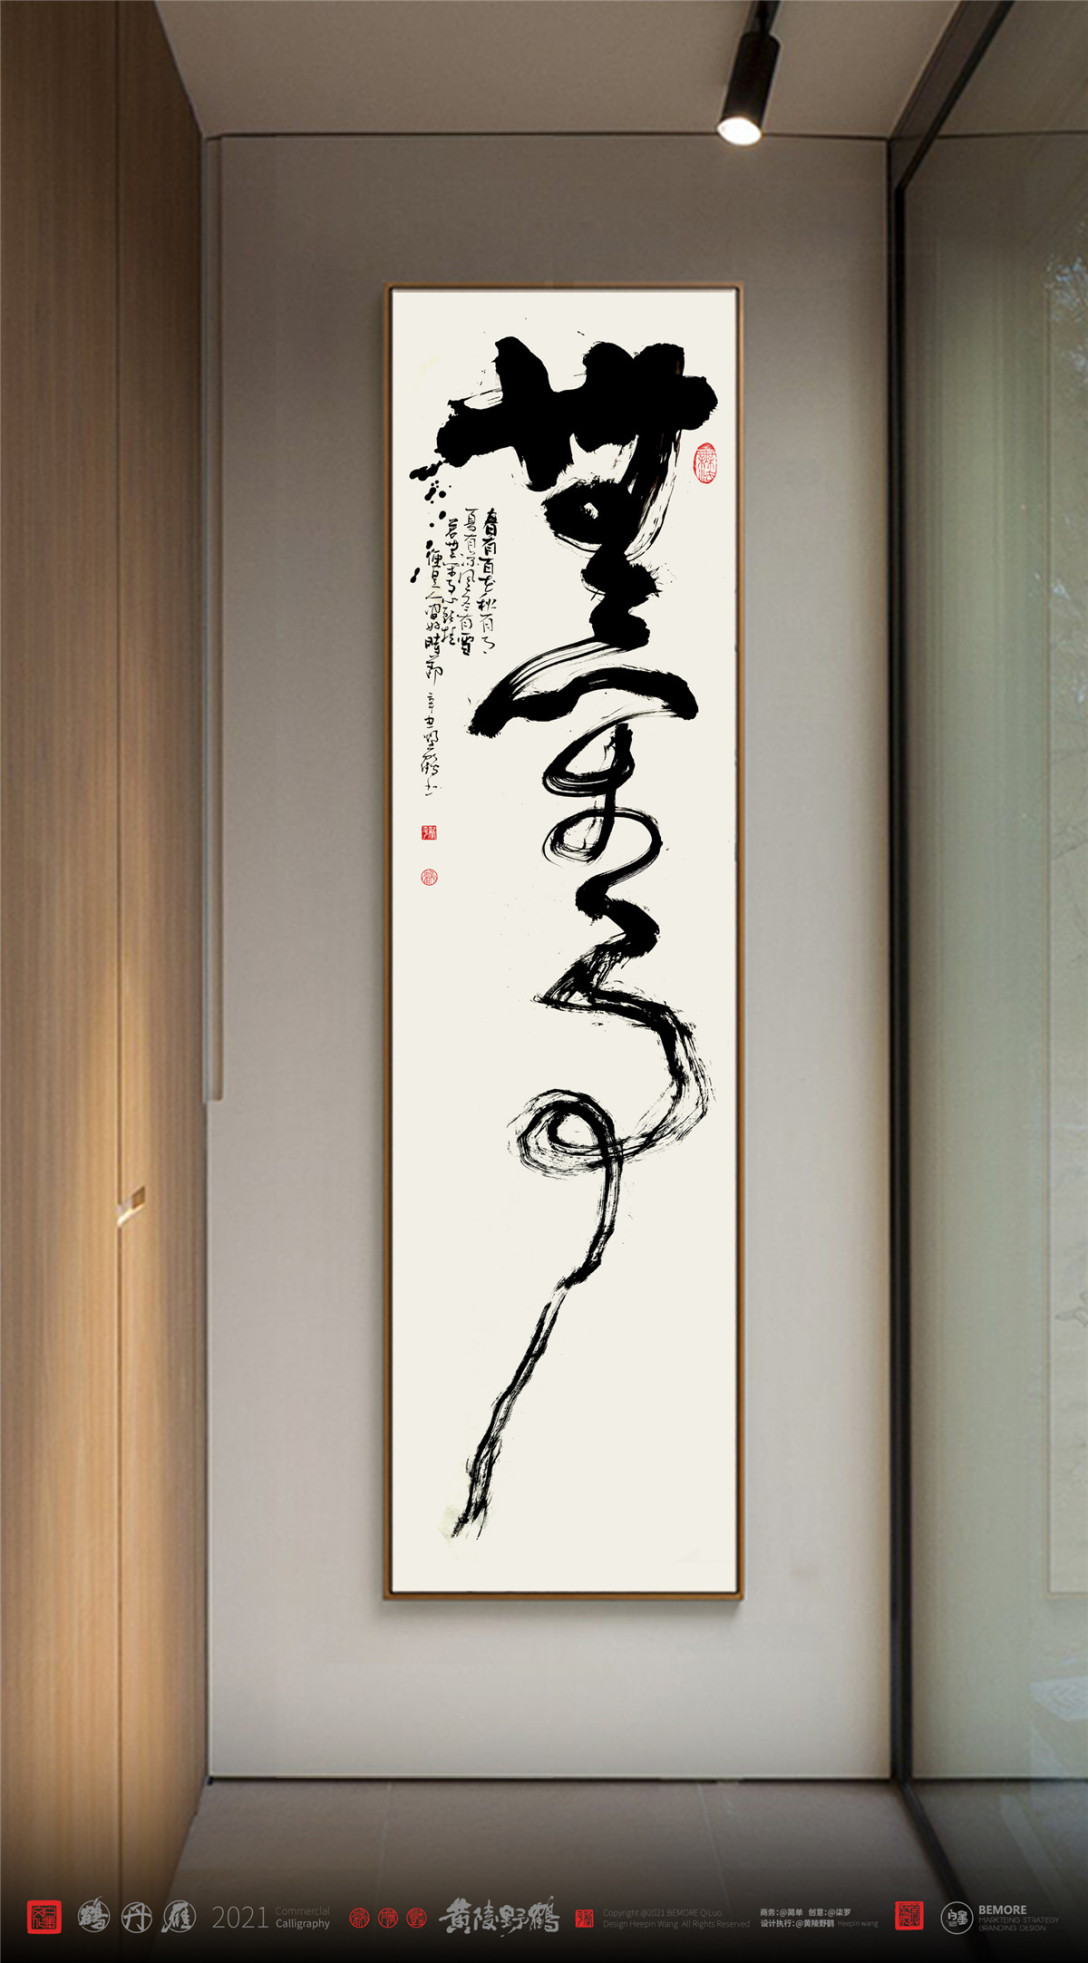 無閑事
春有百花秋有月
夏有凉風冬有雪
若無閑事心頭挂
便是人間好時節 辛丑野鶴書
鶴丹雁
2021 Commercial
Calligraphy
黄陵野鶴
Copyright @2021 BEMORE QiLuo
Design Heepin Wang All Rights Reserved
商务:@简单 创意:@柒罗
设计执行:@黄陵野鹤 Heepin wang
BEMORE
MARKTEING STRATEGY
BRANDING DESIGN